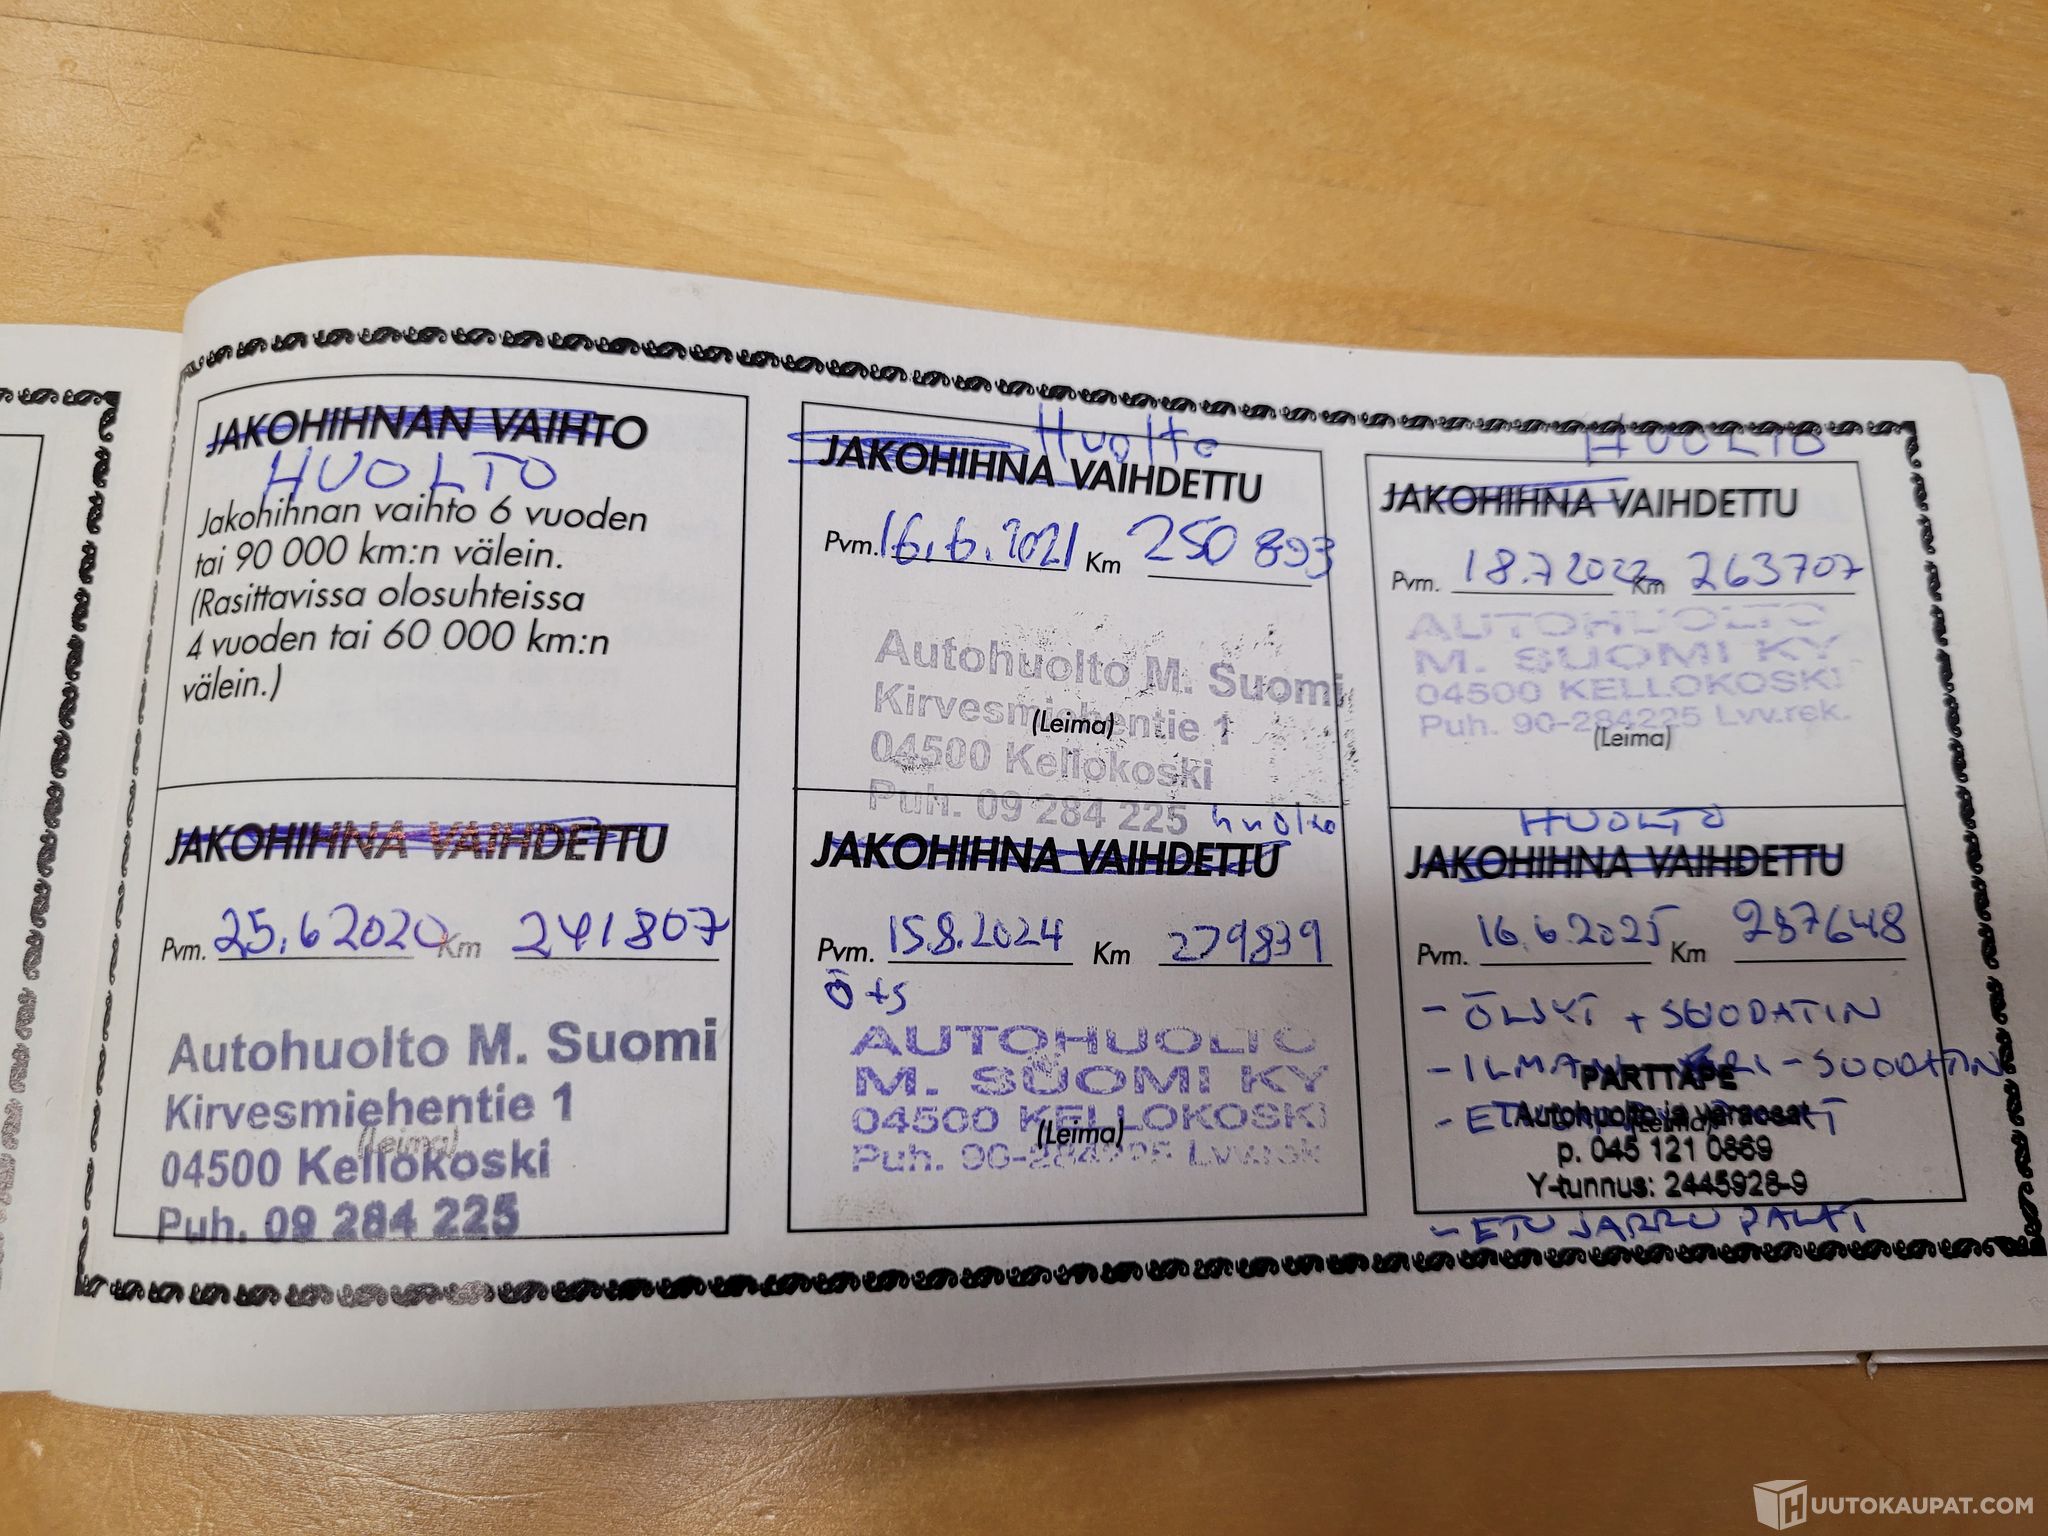 JAKOHIHNAN VAIHTO
HUOLTO
Jakohihnan vaihto 6 vuoden
tai 90 000 km:n välein.
(Rasittavissa olosuhteissa
4 vuoden tai 60 000 km:n
välein.)
JAKOHIHNA VAIHDETTU
Pvm. 25.6 2020 Km 241807
Autohuolto M. Suomi
Kirvesmiehentie 1
(Leima)
04500 Kellokoski
Puh. 09 284 225
Huolto
JAKOHIHNA VAIHDETTU
Pvm. 16.6.2021 Km 250 893
Autohuolto M. Suomi
Kirvesmiehentie 1
(Leima)
04500 Kellokoski
Puh. 09 284 225
huolto
JAKOHIHNA VAIHDETTU
Pvm. 15.8.2024 Km 279839
Ö+s
AUTOHUOLTO
M. SUOMI KY
04500 KELLOKOSKI
(Leima)
Puh. 90-284225 Lvv.rek
HUOLTO
JAKOHIHNA VAIHDETTU
Pvm. 18.7 2022 Km 263707
AUTOHUOLTO
M. SUOMI KY
04500 KELLOKOSKI
Puh. 90-284225 Lvv.rek.
(Leima)
HUOLTO
JAKOHIHNA VAIHDETTU
Pvm. 16.6.2025 Km 287648
- ÖLJYT + SUODATIN
- ILMAN -SUODATIN
PARTTAPE
Autohuolto ja varaosat
(Leima)
p. 045 121 0869
Y-tunnus: 2445928-9
- ETU JARRU PALAT
HUUTOKAUPAT.COM